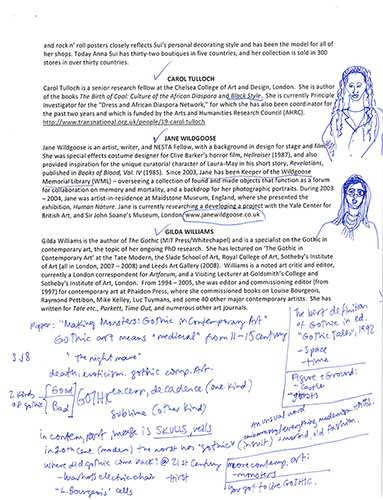 and rock n' roll posters closely reflects Sui's personal decorating style and has been the model for all of her
shops. Today Anna Sui has thirty-two boutiques in five countries, and her collection is sold in 300
stores in over thirty countries.
CAROL TULLOCH
Carol Tulloch is a senior research fellow at the Chelsea College of Art and Design, London. She is author
of the books The Birth of Cool: Culture of the African Diaspora and Black Style. She is currently Principle
Investigator for the "Dress and African Diaspora Network," for which she has also been coordinator for
the past two years and which is funded by the Arts and Humanities Research Council (AHRC).
http://www.transnational.org.uk/people/19-carol-tulloch
JANE WILDGOOSE
Jane Wildgoose is an artist, writer, and NESTA Fellow, with a background in design for stage and film.
She was special effects costume designer for Clive Barker's horror film, Hellraiser (1987), and also
provided inspiration for the unique curatorial character of Laura-May in his short story, Revelations,
published in Books of Blood, Vol. IV (1985). Since 2003, Jane has been Keeper of the Wildgoose
Memorial Library (WML) – overseeing a collection of found and made objects that function as a forum
for collaboration on memory and mortality, and a backdrop for her photographic portraits. During 2003
– 2004, Jane was artist-in-residence at Maidstone Museum, England, where she presented the
exhibition, Human Nature. Jane is currently researching a developing a project with the Yale Center for
British Art, and Sir John Soane's Museum, London. www.janewildgoose.co.uk
GILDA WILLIAMS
Gilda Williams is the author of The Gothic (MIT Press/Whitechapel) and is a specialist on the Gothic in
contemporary art, the topic of her ongoing PhD research. She has lectured on 'The Gothic in
Contemporary Art' at the Tate Modern, the Slade School of Art, Royal College of Art, Sotheby's Institute
of Art (all in London, 2007 – 2008) and Leeds Art Gallery (2008). Williams is a noted art critic and editor,
currently a London correspondent for Artforum, and a Visiting Lecturer at Goldsmith's College and
Sotheby's Institute of Art, London. From 1994 – 2005, she was editor and commissioning editor (from
1997) for contemporary art at Phaidon Press, where she commissioned books on Louise Bourgeois,
Raymond Pettibon, Mike Kelley, Luc Tuymans, and some 40 other major contemporary artists. She has
written for Tate etc., Parkett, Time Out, and numerous other art journals.
Paper: "Making Monsters: Gothic in Contemporary Art"
Gothic art means "medieval" from 11-15 century
"The nightmare"
death, eroticism. gothic comp. art.
2 kinds of gothic
Good
Bad
GOTHIC
excess, decadence (one kind)
sublime (other kind)
in contemp. art, image is SKULLS, veils
in 20th cent. (modern) the worst was "gothic" (insult) = morbid, old fashion.
where did gothic come back? @ 21st century
- Warhol's electric chair - Hirst
- L. Bourgeois' cells
The best definition
of Gothic in ed.
"Gothic Tales", 1992
- space
- time
Figure + Ground:
- castle
- ghosts
an unusual word
more contemp. art:
- monsters